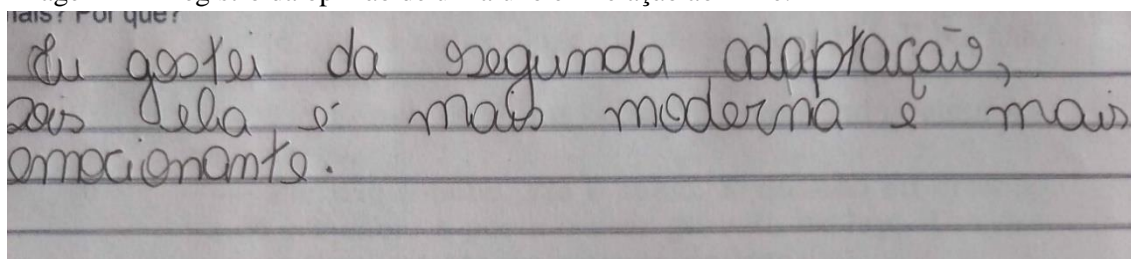 mais? Por que?
Eu gostei da segunda adaptação,
pois ela é mais moderna é mais
emocionante.